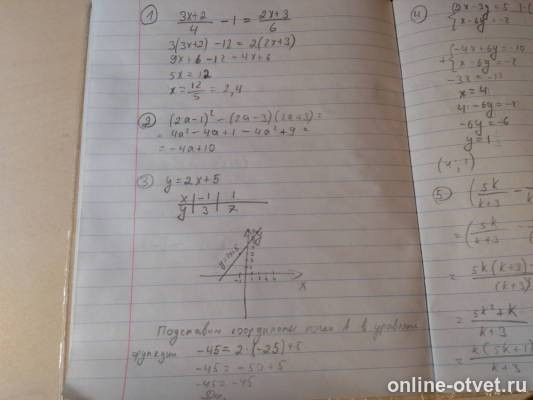 1) (3x+2)/4 - 1 = (2x+3)/6
3(3x+2) - 12 = 2(2x+3)
9x+6-12-4x+6
5x = 12
x = 12/5 = 2,4
2) (2a-1)² - (2a-3)(2a+3) =
= 4a² - 4a + 1 - 4a² + 9 =
= -4a + 10
3) y = 2x+5
x | -1 | 1
y | 3 | 7
y=2x+5
x
Подставим координаты точки А в уравнение
функции -45 = 2·(-25)+5
-45 = -50+5
-45 = -45
Да.
4)
x-6y=-2
{-4x+6y=-10
+{x-6y=-2
-3x=-12
x=4
4-6y=-2
-6y=-6
y=1
(4,1)
5) (5k/(k+3) -
= (5k/(k+3) -
= 5k(k+3)
(k+3)
= (5k²+k)/(k+3)
= k(5k+1)/(k+3)
online-otvet.ru